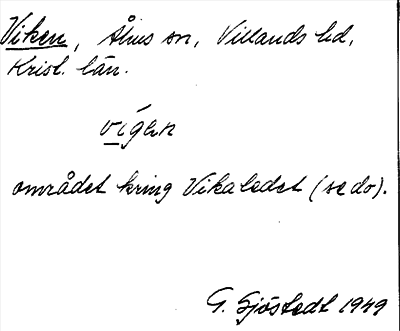 Viken, Åhus sn, Villands hd,
Krist. län.
vígen
området kring Vikaledet (se do).
G. Sjöstedt 1949